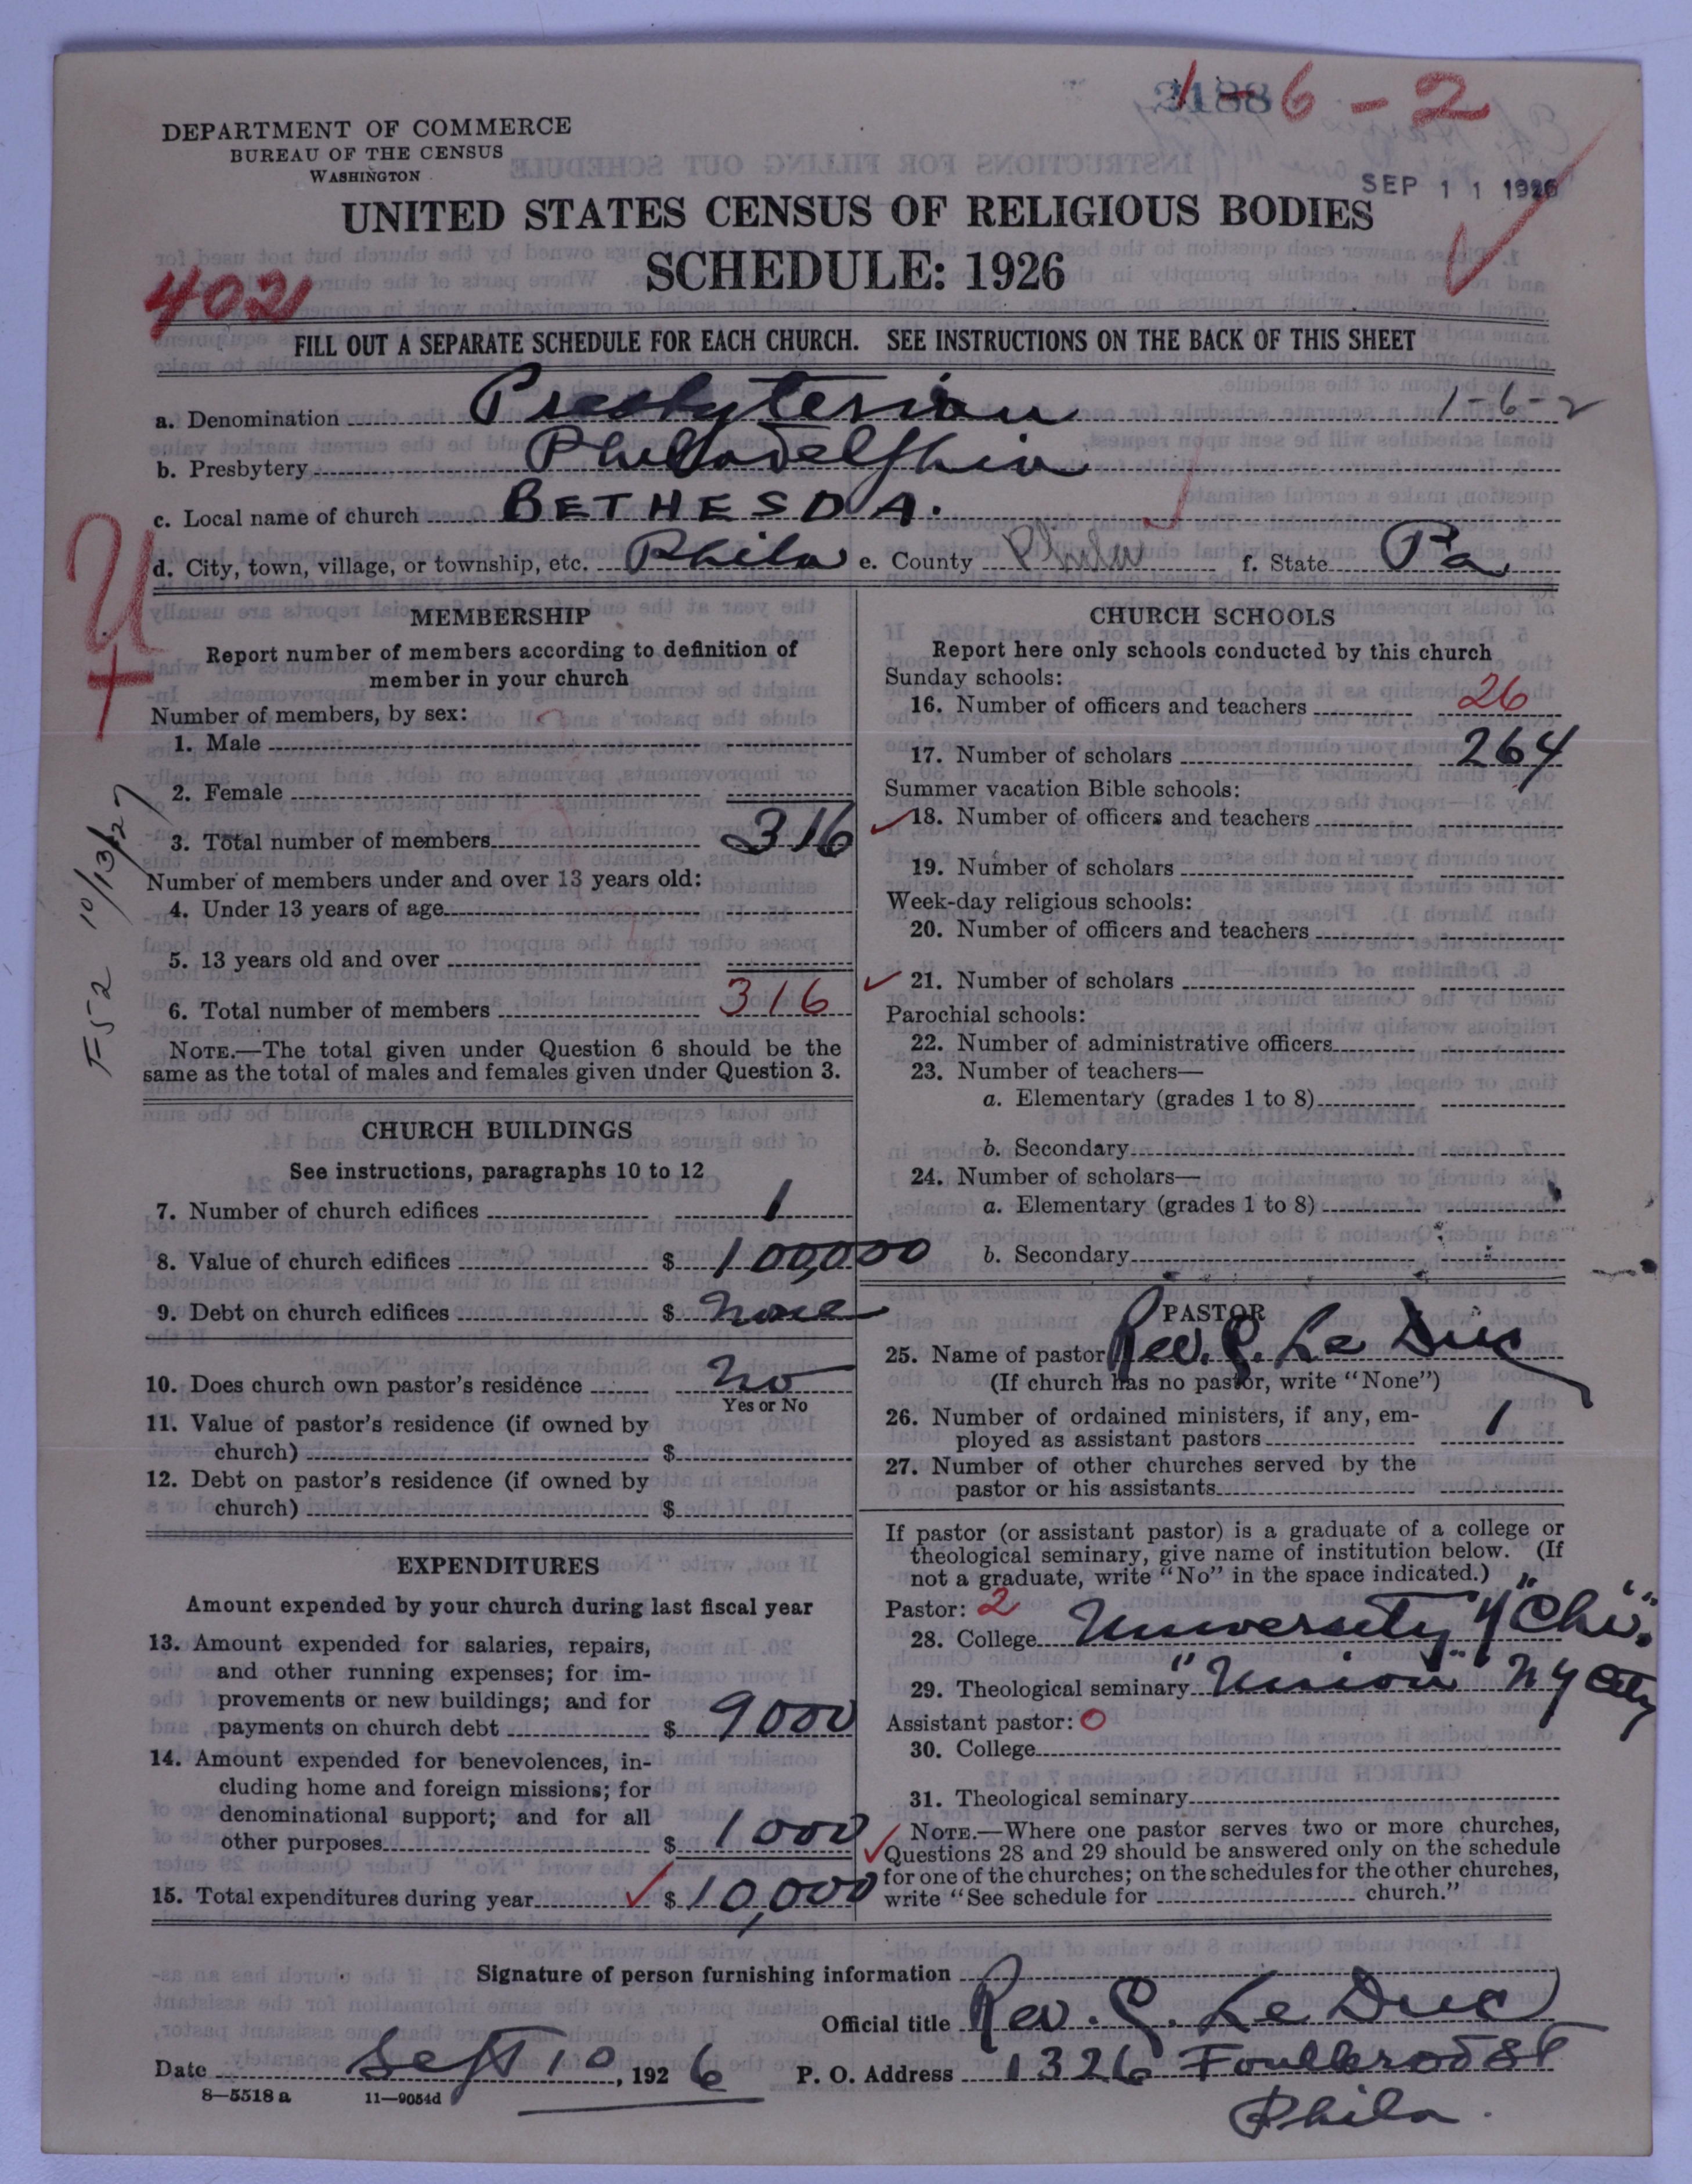 1-6-2
DEPARTMENT OF COMMERCE
BUREAU OF THE CENSUS
WASHINGTON
SEP 11 1926
UNITED STATES CENSUS OF RELIGIOUS BODIES
SCHEDULE: 1926
402
FILL OUT A SEPARATE SCHEDULE FOR EACH CHURCH. SEE INSTRUCTIONS ON THE BACK OF THIS SHEET
a. Denomination Presbyterian 1-6-2
b. Presbytery Philadelphia
c. Local name of church BETHESDA.
d. City, town, village, or township, etc. Phila e. County Phila f. State Pa
MEMBERSHIP
Report number of members according to definition of
member in your church
Number of members, by sex:
1. Male
2. Female
3. Total number of members 316
Number of members under and over 13 years old:
4. Under 13 years of age
5. 13 years old and over
6. Total number of members 316
NOTE.—The total given under Question 6 should be the
same as the total of males and females given under Question 3.
10/13/27
CHURCH BUILDINGS
See instructions, paragraphs 10 to 12
7. Number of church edifices 1
8. Value of church edifices $ 100,000
9. Debt on church edifices $ none
10. Does church own pastor's residence No
Yes or No
11. Value of pastor's residence (if owned by
church) $
12. Debt on pastor's residence (if owned by
church) $
EXPENDITURES
Amount expended by your church during last fiscal year
13. Amount expended for salaries, repairs,
and other running expenses; for im-
provements or new buildings; and for
payments on church debt $ 9000
14. Amount expended for benevolences, in-
cluding home and foreign missions; for
denominational support; and for all
other purposes $ 1000
15. Total expenditures during year $ 10,000
CHURCH SCHOOLS
Report here only schools conducted by this church
Sunday schools:
16. Number of officers and teachers 26
17. Number of scholars 264
Summer vacation Bible schools:
18. Number of officers and teachers
19. Number of scholars
Week-day religious schools:
20. Number of officers and teachers
21. Number of scholars
Parochial schools:
22. Number of administrative officers
23. Number of teachers—
a. Elementary (grades 1 to 8)
b. Secondary
24. Number of scholars—
a. Elementary (grades 1 to 8)
b. Secondary
PASTOR
25. Name of pastor Rev. G. Le Duc
(If church has no pastor, write "None")
26. Number of ordained ministers, if any, em-
ployed as assistant pastors 1
27. Number of other churches served by the
pastor or his assistants
If pastor (or assistant pastor) is a graduate of a college or
theological seminary, give name of institution below. (If
not a graduate, write "No" in the space indicated.)
Pastor: 2
28. College University of "Chi".
29. Theological seminary "Union" N Y City
Assistant pastor: 0
30. College
31. Theological seminary
NOTE.—Where one pastor serves two or more churches,
Questions 28 and 29 should be answered only on the schedule
for one of the churches; on the schedules for the other churches,
write "See schedule for church."
Signature of person furnishing information
Official title Rev. G. Le Duc
Date Sept 10, 1926 P. O. Address 1326 Foulkrod St
8-5518 a 11-9054d
Phila.